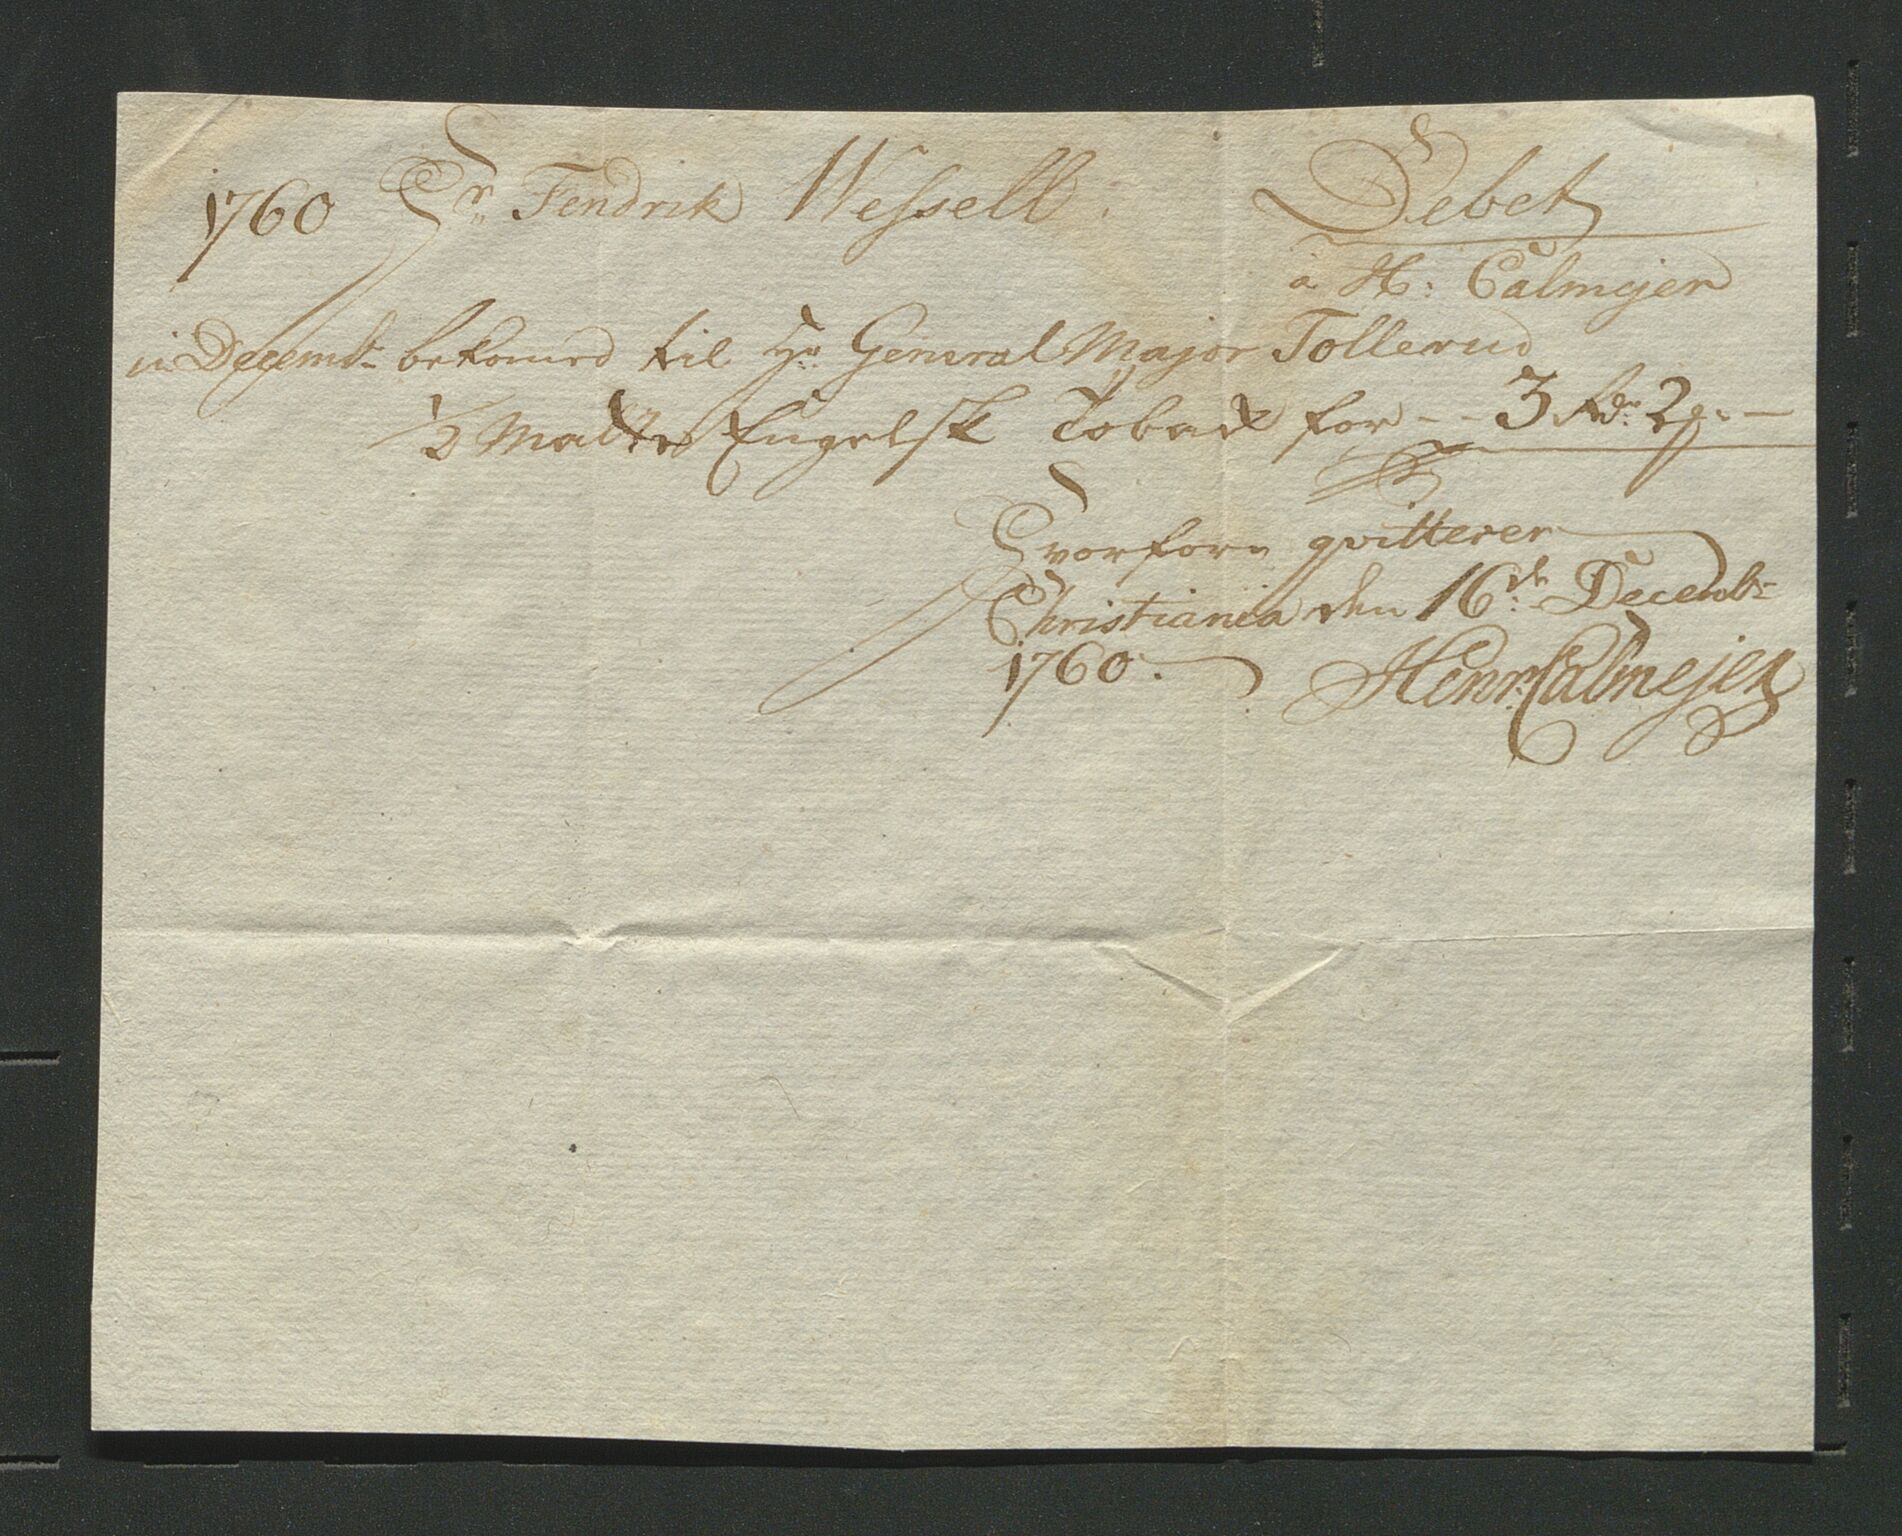 1760 Hr Fendrik Wessell. Debet
a H: Calmejer
in Decembr bekomed til Hr General Major Tollerud
1/2 Engelsk Tobak for -- 3 Rdr 2
Hvorfore qvitterer
Christiania den 16de Decembr
1760. Henr: Calmejer